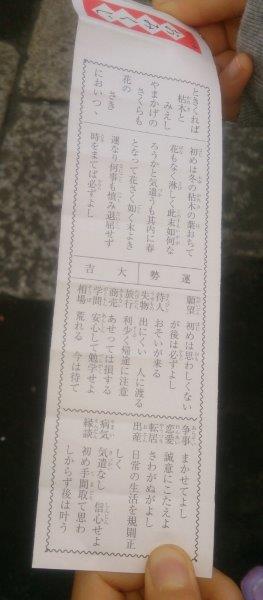 おみくじ
ときくれば
枯木と
みえし
やまかげの
さくらも
花の
さき
においつゝ
初めは冬の枯木の葉おちて
花もなく淋しく此末如何な
ろうかと気遣うも其内に春
となって花さく如く末よき
運なり何事も慎み退屈せず
時をまてば必ずよし
運勢 大吉
願望 初めは思わしくない
が後は必ずよし
待人 おそいが来る
失物 出にくい 人に渡る
旅行 利少く帰途に注意
商売 あせっては損する
学問 安心して勉学せよ
相場 荒れる 今は待て
争事 まかせてよし
恋愛 誠意にこたえよ
転居 さわがぬがよし
出産 日常の生活を規則正
しく
病気 気遣なし 信心せよ
縁談 初め手間取て思わ
しからず後は叶う